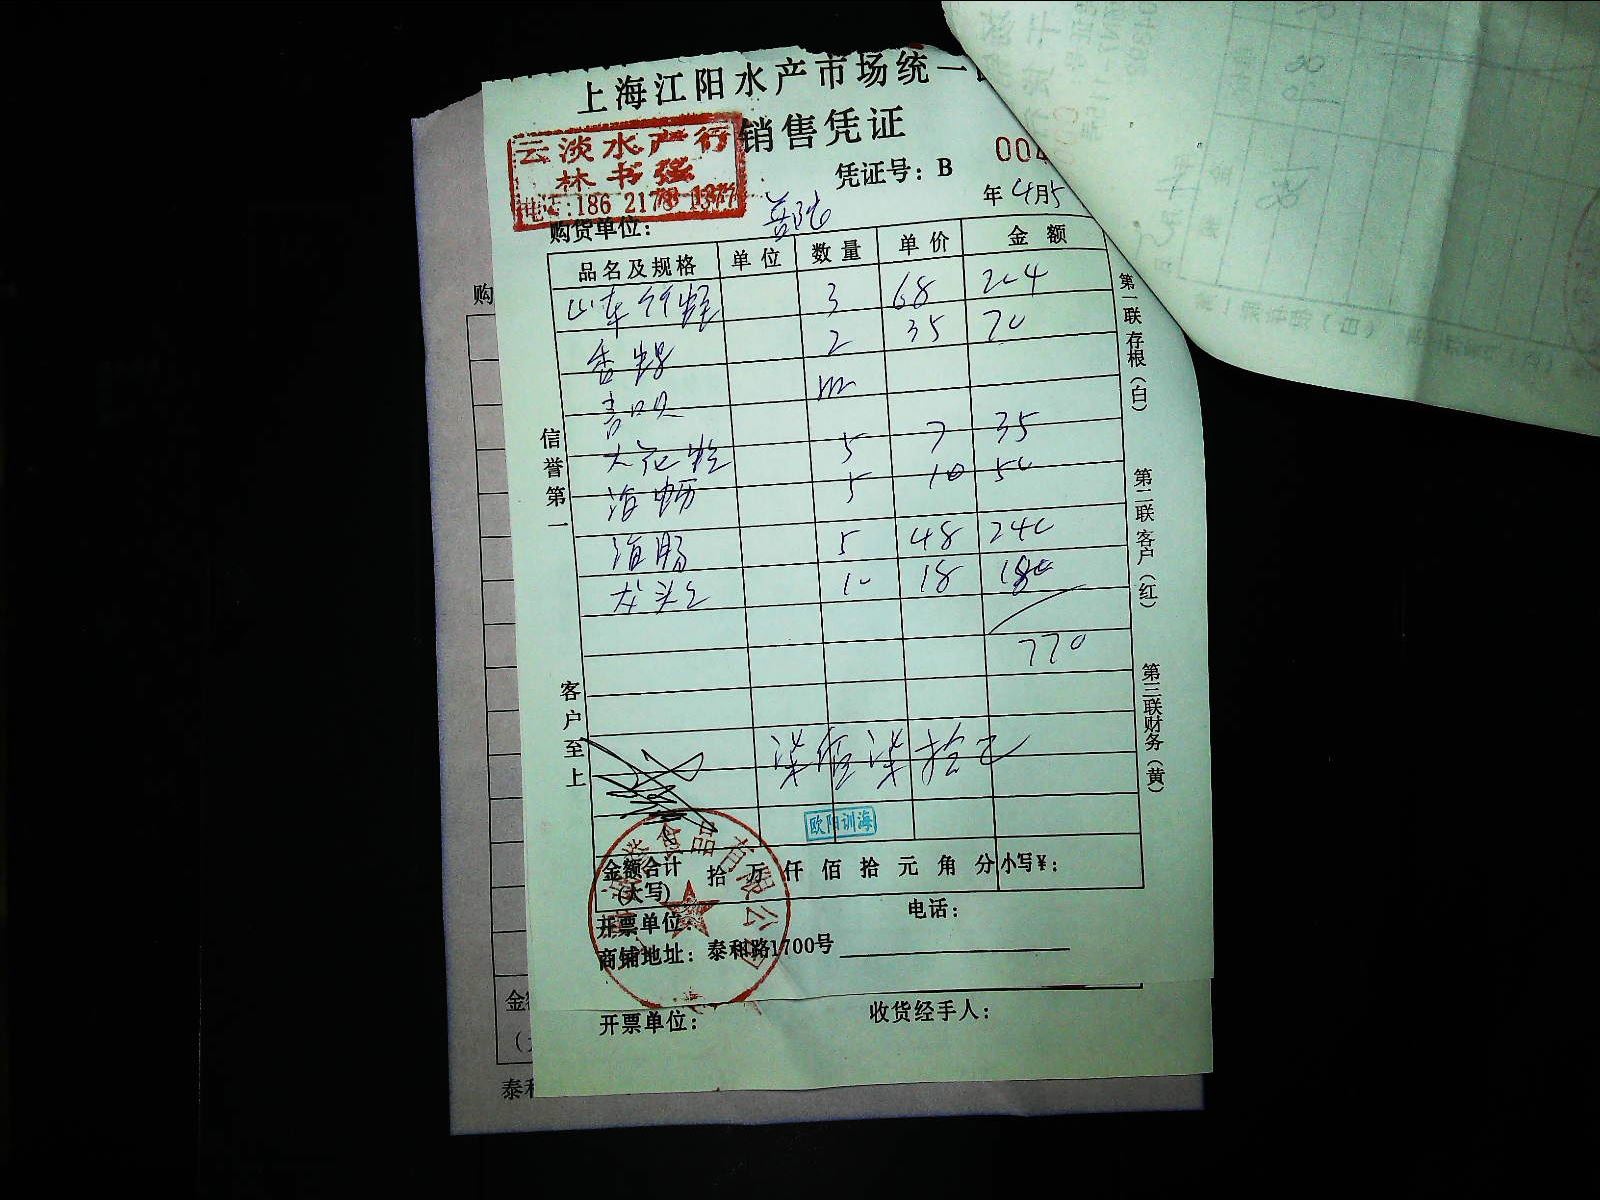 上海江阳水产市场统一
销售凭证
云淡水产行
林书强
电话:186 2178 1377
凭证号：B 004
年 4月5
购货单位： 普陀
品名及规格 单位 数量 单价 金额
山东竹蛏 3 68 204
香螺 2 35 70
青口贝
大花蛤 5 7 35
海蛎 5 10 50
海肠 5 48 240
龙头 10 18 180
770
柒佰柒拾元
欧阳训海
金额合计
(大写) 拾 万 仟 佰 拾 元 角 分 小写￥：
食品有限公司
开票单位： 电话：
商铺地址：泰和路1700号
开票单位： 收货经手人：
信誉第一
客户至上
第一联存根（白）
第二联客户（红）
第三联财务（黄）
购
金
泰和